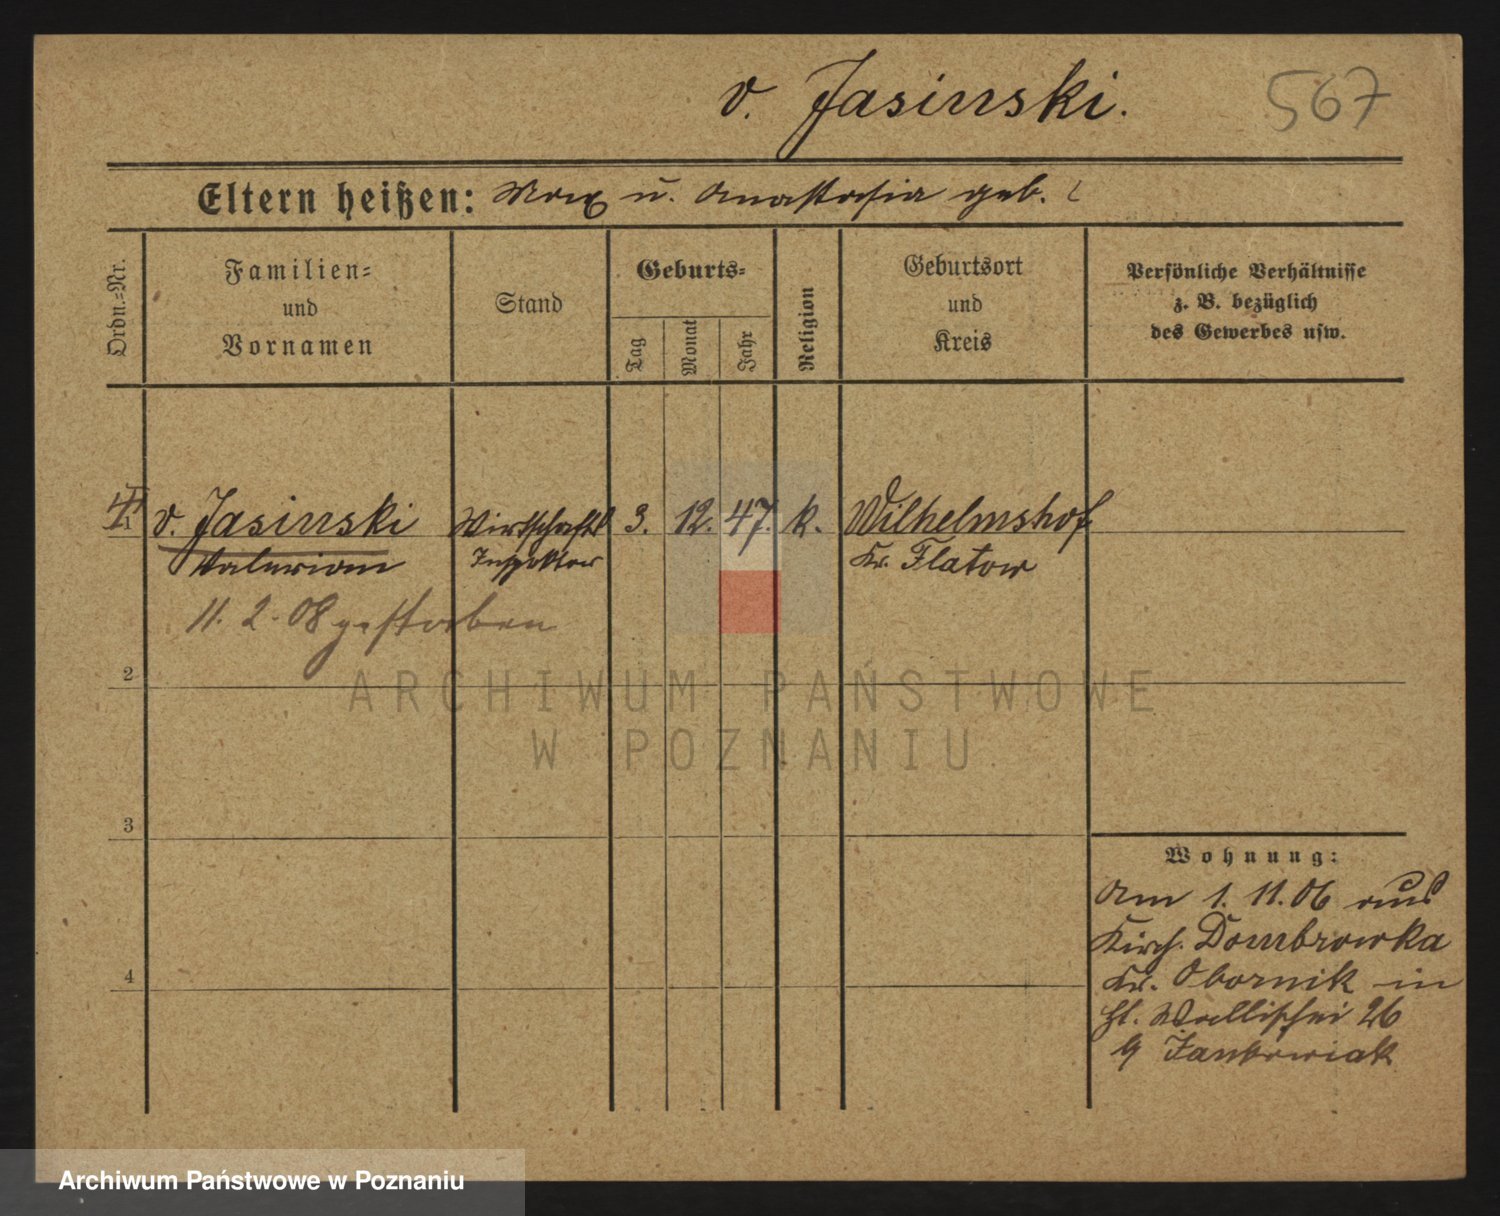 v. Jasinski.
567
Eltern heißen: Max u. Anastasia geb. ?
Ordn.=Nr.
Familien=
und
Vornamen
Stand
Geburts=
Tag
Monat
Jahr
Religion
Geburtsort
und
Kreis
Persönliche Verhältnisse
z. B. bezüglich
des Gewerbes usw.
1 v. Jasinski Wirtschafts 3. 12. 47. k. Wilhelmshof
Valerian Inspektor Kr. Flatow
11. 2. 08 gestorben
2
3
4
Wohnung:
Am 1. 11. 06 aus
Kirch. Dombrowka
Kr. Obornik in
Wallischei 26
ARCHIWUM PAŃSTWOWE
W POZNANIU
Archiwum Państwowe w Poznaniu